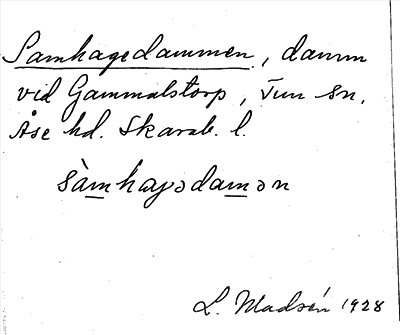 Samhagedammen, damm
vid Gammalstorp, Tun sn,
Åse hd. Skarab. l.
sàmhaɣədamən
L. Madsén 1928